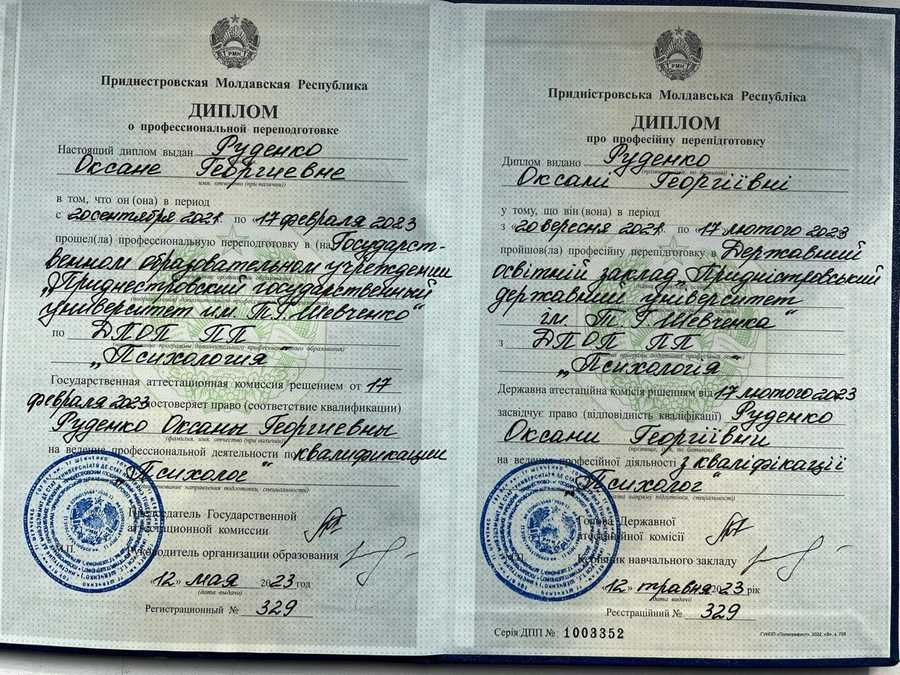 РМН
Приднестровская Молдавская Республика
ДИПЛОМ
о профессиональной переподготовке
Настоящий диплом выдан Руденко
Оксане Георгиевне
имя, отчество (при наличии)
в том, что он (она) в период
с 20 сентября 2021. по 17 февраля 2023
прошел(ла) профессиональную переподготовку в (на) Государст-
венном образовательном учреждении
„Приднестровский государственный
университет им. Т.Г. Шевченко“
по ДПОП ПП
„Психология“
Государственная аттестационная комиссия решением от 17
февраля 2023 удостоверяет право (соответствие квалификации)
Руденко Оксаны Георгиевны
(фамилия, имя, отчество (при наличии)
на ведение профессиональной деятельности по квалификации
„Психолог“
Председатель Государственной
аттестационной комиссии
М.П. Руководитель организации образования
„12“ мая 2023 год
(дата выдачи)
Регистрационный № 329
РМН
Придністровська Молдавська Республіка
ДИПЛОМ
про професійну перепідготовку
Диплом видано Руденко
Оксані Георгіївні
у тому, що він (вона) в період
з "20 вересня 2021. по 17 лютого 2023
пройшов(ла) професійну перепідготовку в Державний
освітній заклад „Придністровський
державний університет
ім. Т. Г. Шевченка“
з ДПОП ПП
„Психологія“
Державна атестаційна комісія рішенням від 17 лютого 2023
засвідчує право (відповідність кваліфікації) Руденко
Оксани Георгіївни
на ведення професійної діяльності з кваліфікації
„Психолог“
Голова Державної
атестаційної комісії
Керівник навчального закладу
„12“ травня 2023 рік
(дата видачі)
Реєстраційний № 329
Серія ДПП № 1003352